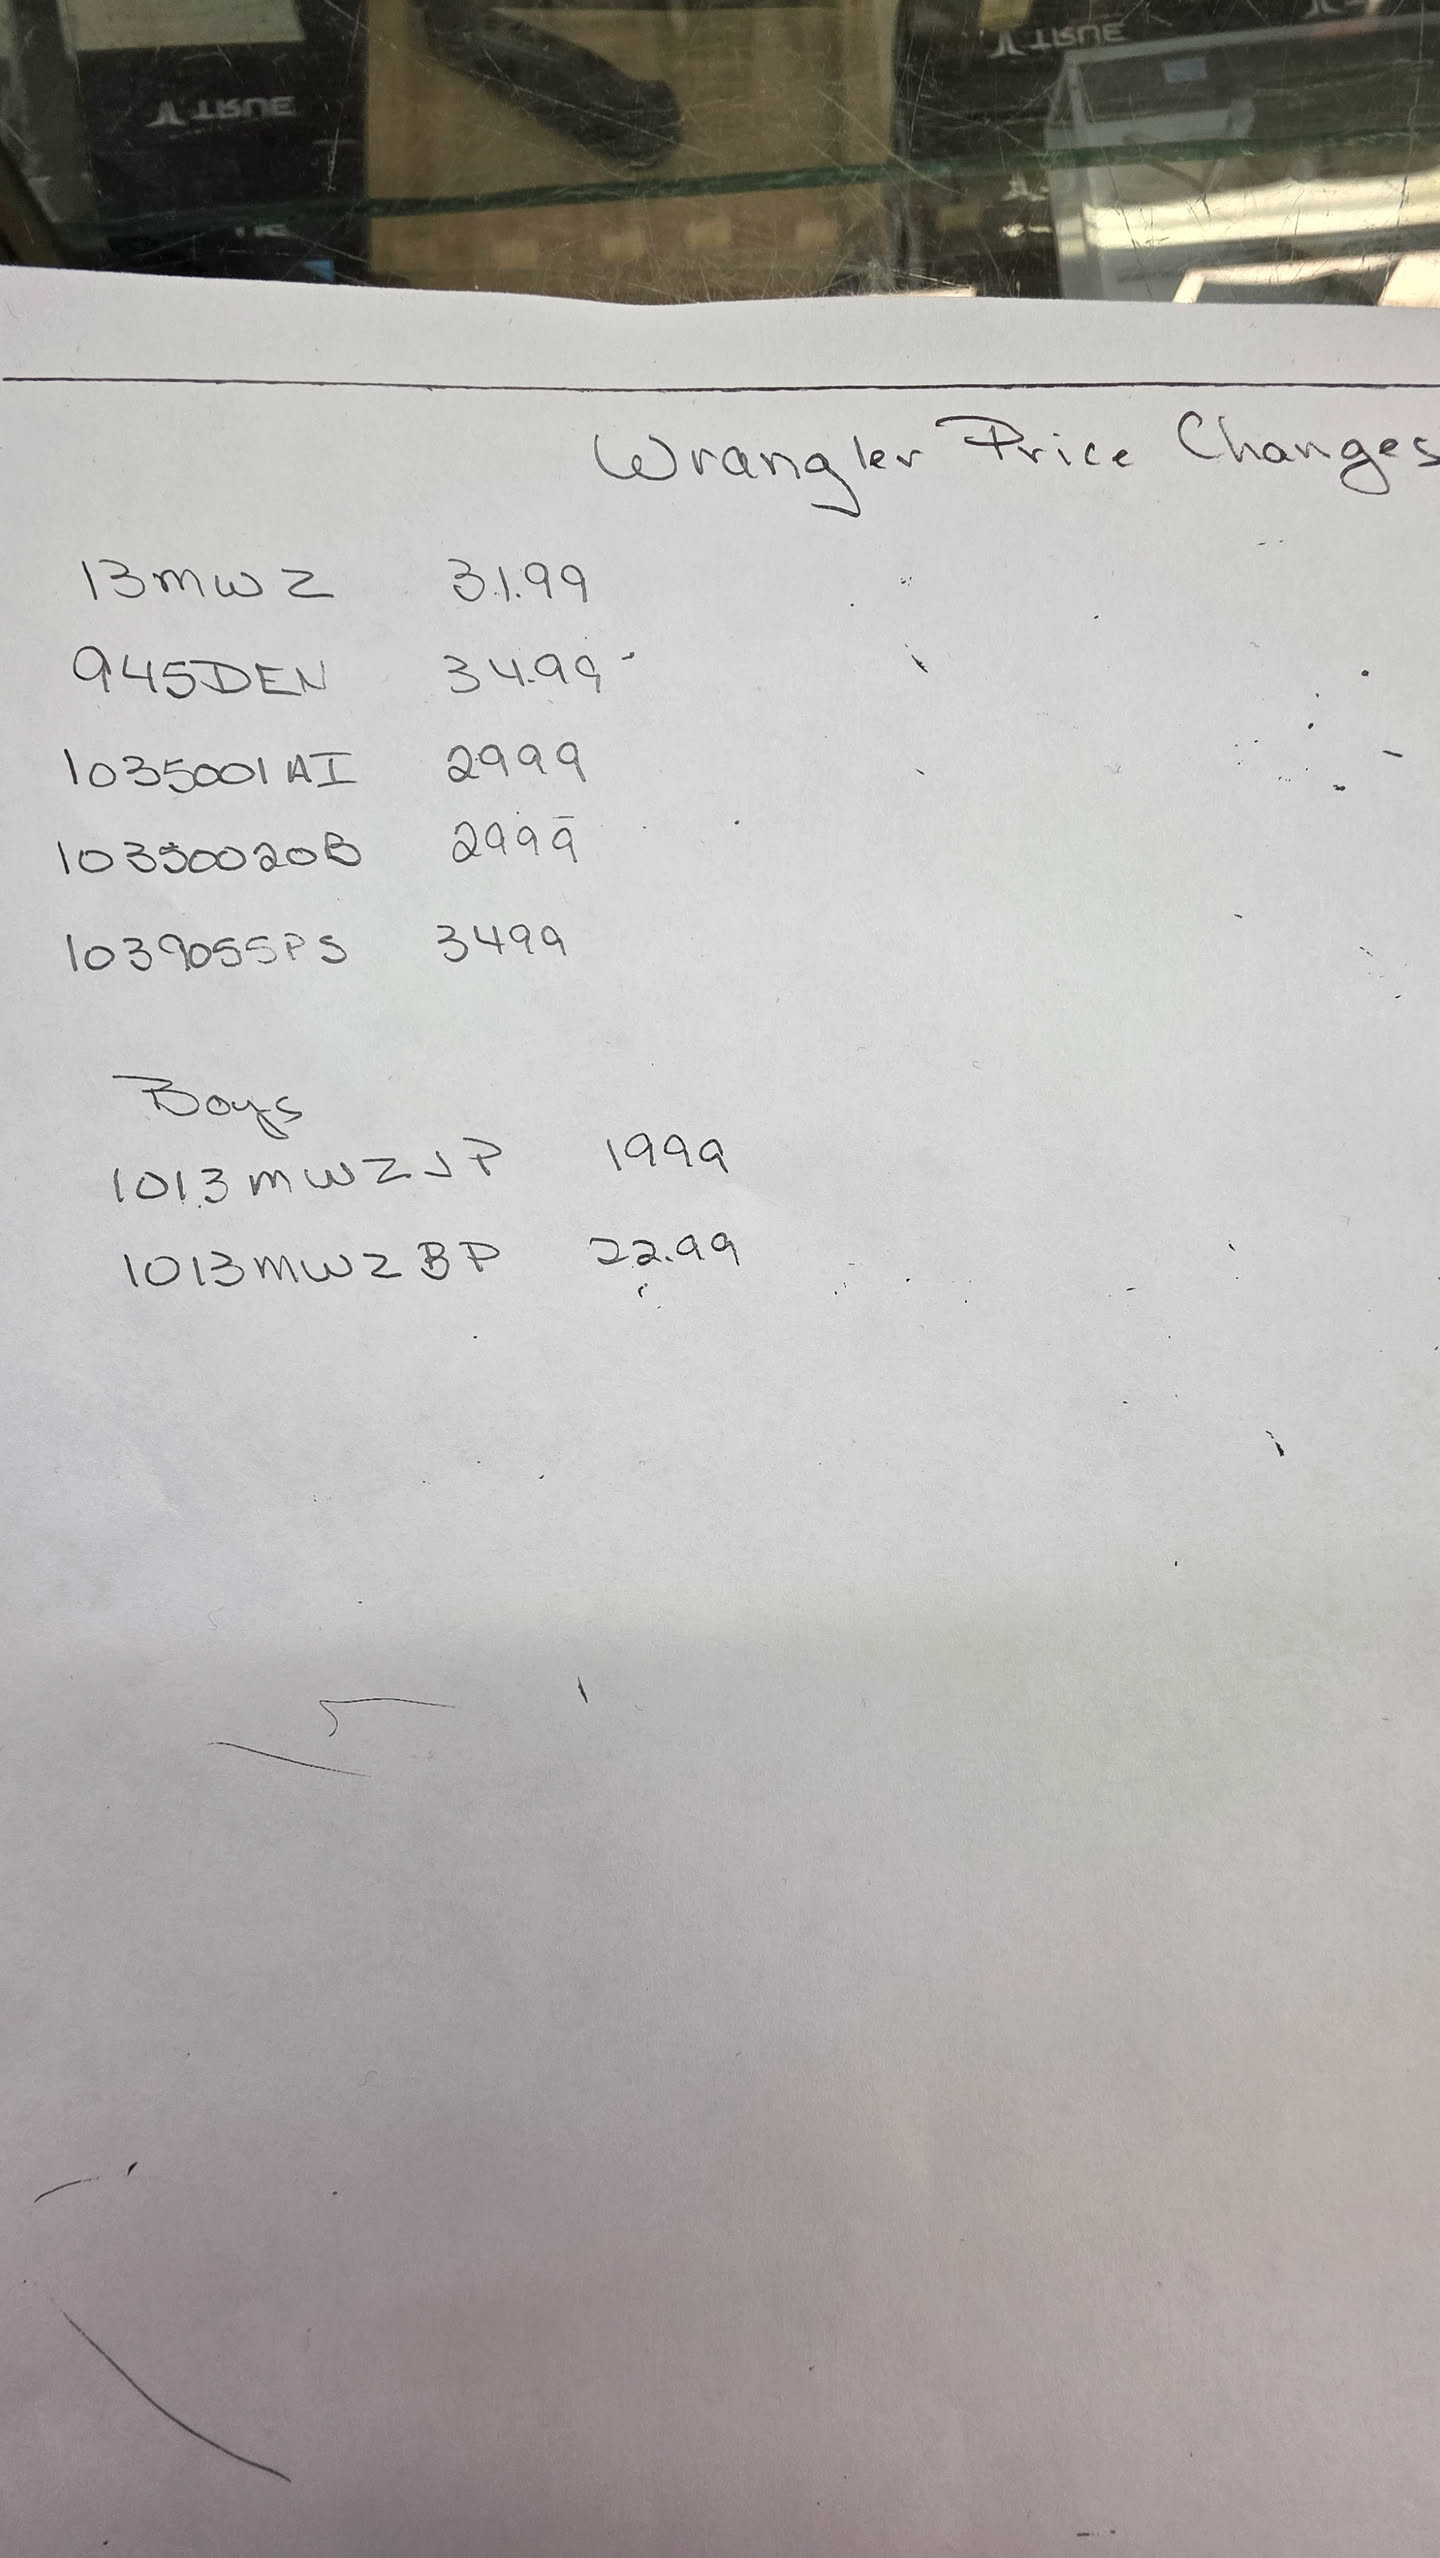 TRUE
TRUE
Wrangler Price Changes
13mwz 31.99
945DEN 34.99
1035001AI 2999
10350020B 2999
1039055PS 3499
Boys
1013mwzJP 1999
1013mwzBP 22.99